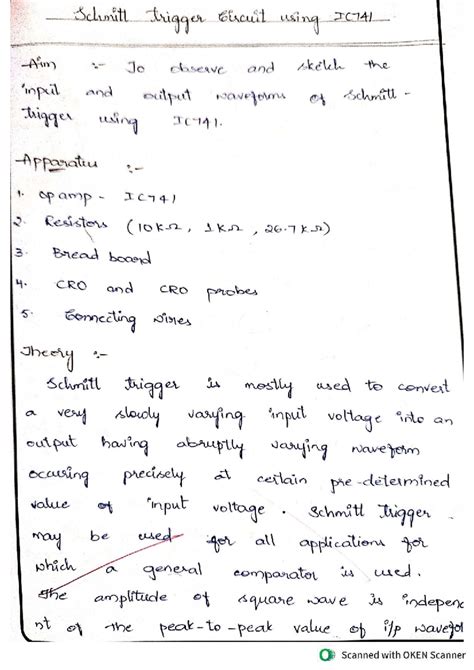 Schmitt Trigger Circuit using IC741
Aim :- To observe and sketch the
input and output waveforms of Schmitt-
trigger using IC741.
Apparatus :-
1. op amp - IC741
2. Resistors (10KΩ, 1KΩ, 26.7KΩ)
3. Bread board
4. CRO and CRO probes
5. Connecting wires
Theory :-
Schmitt trigger is mostly used to convert
a very slowly varying input voltage into an
output having abruptly varying waveform
occuring precisely at certain pre-determined
value of input voltage. Schmitt Trigger
may be used for all applications for
which a general comparator is used.
The amplitude of square wave is independe
nt of the peak-to-peak value of i/p wavefor
Scanned with OKEN Scanner